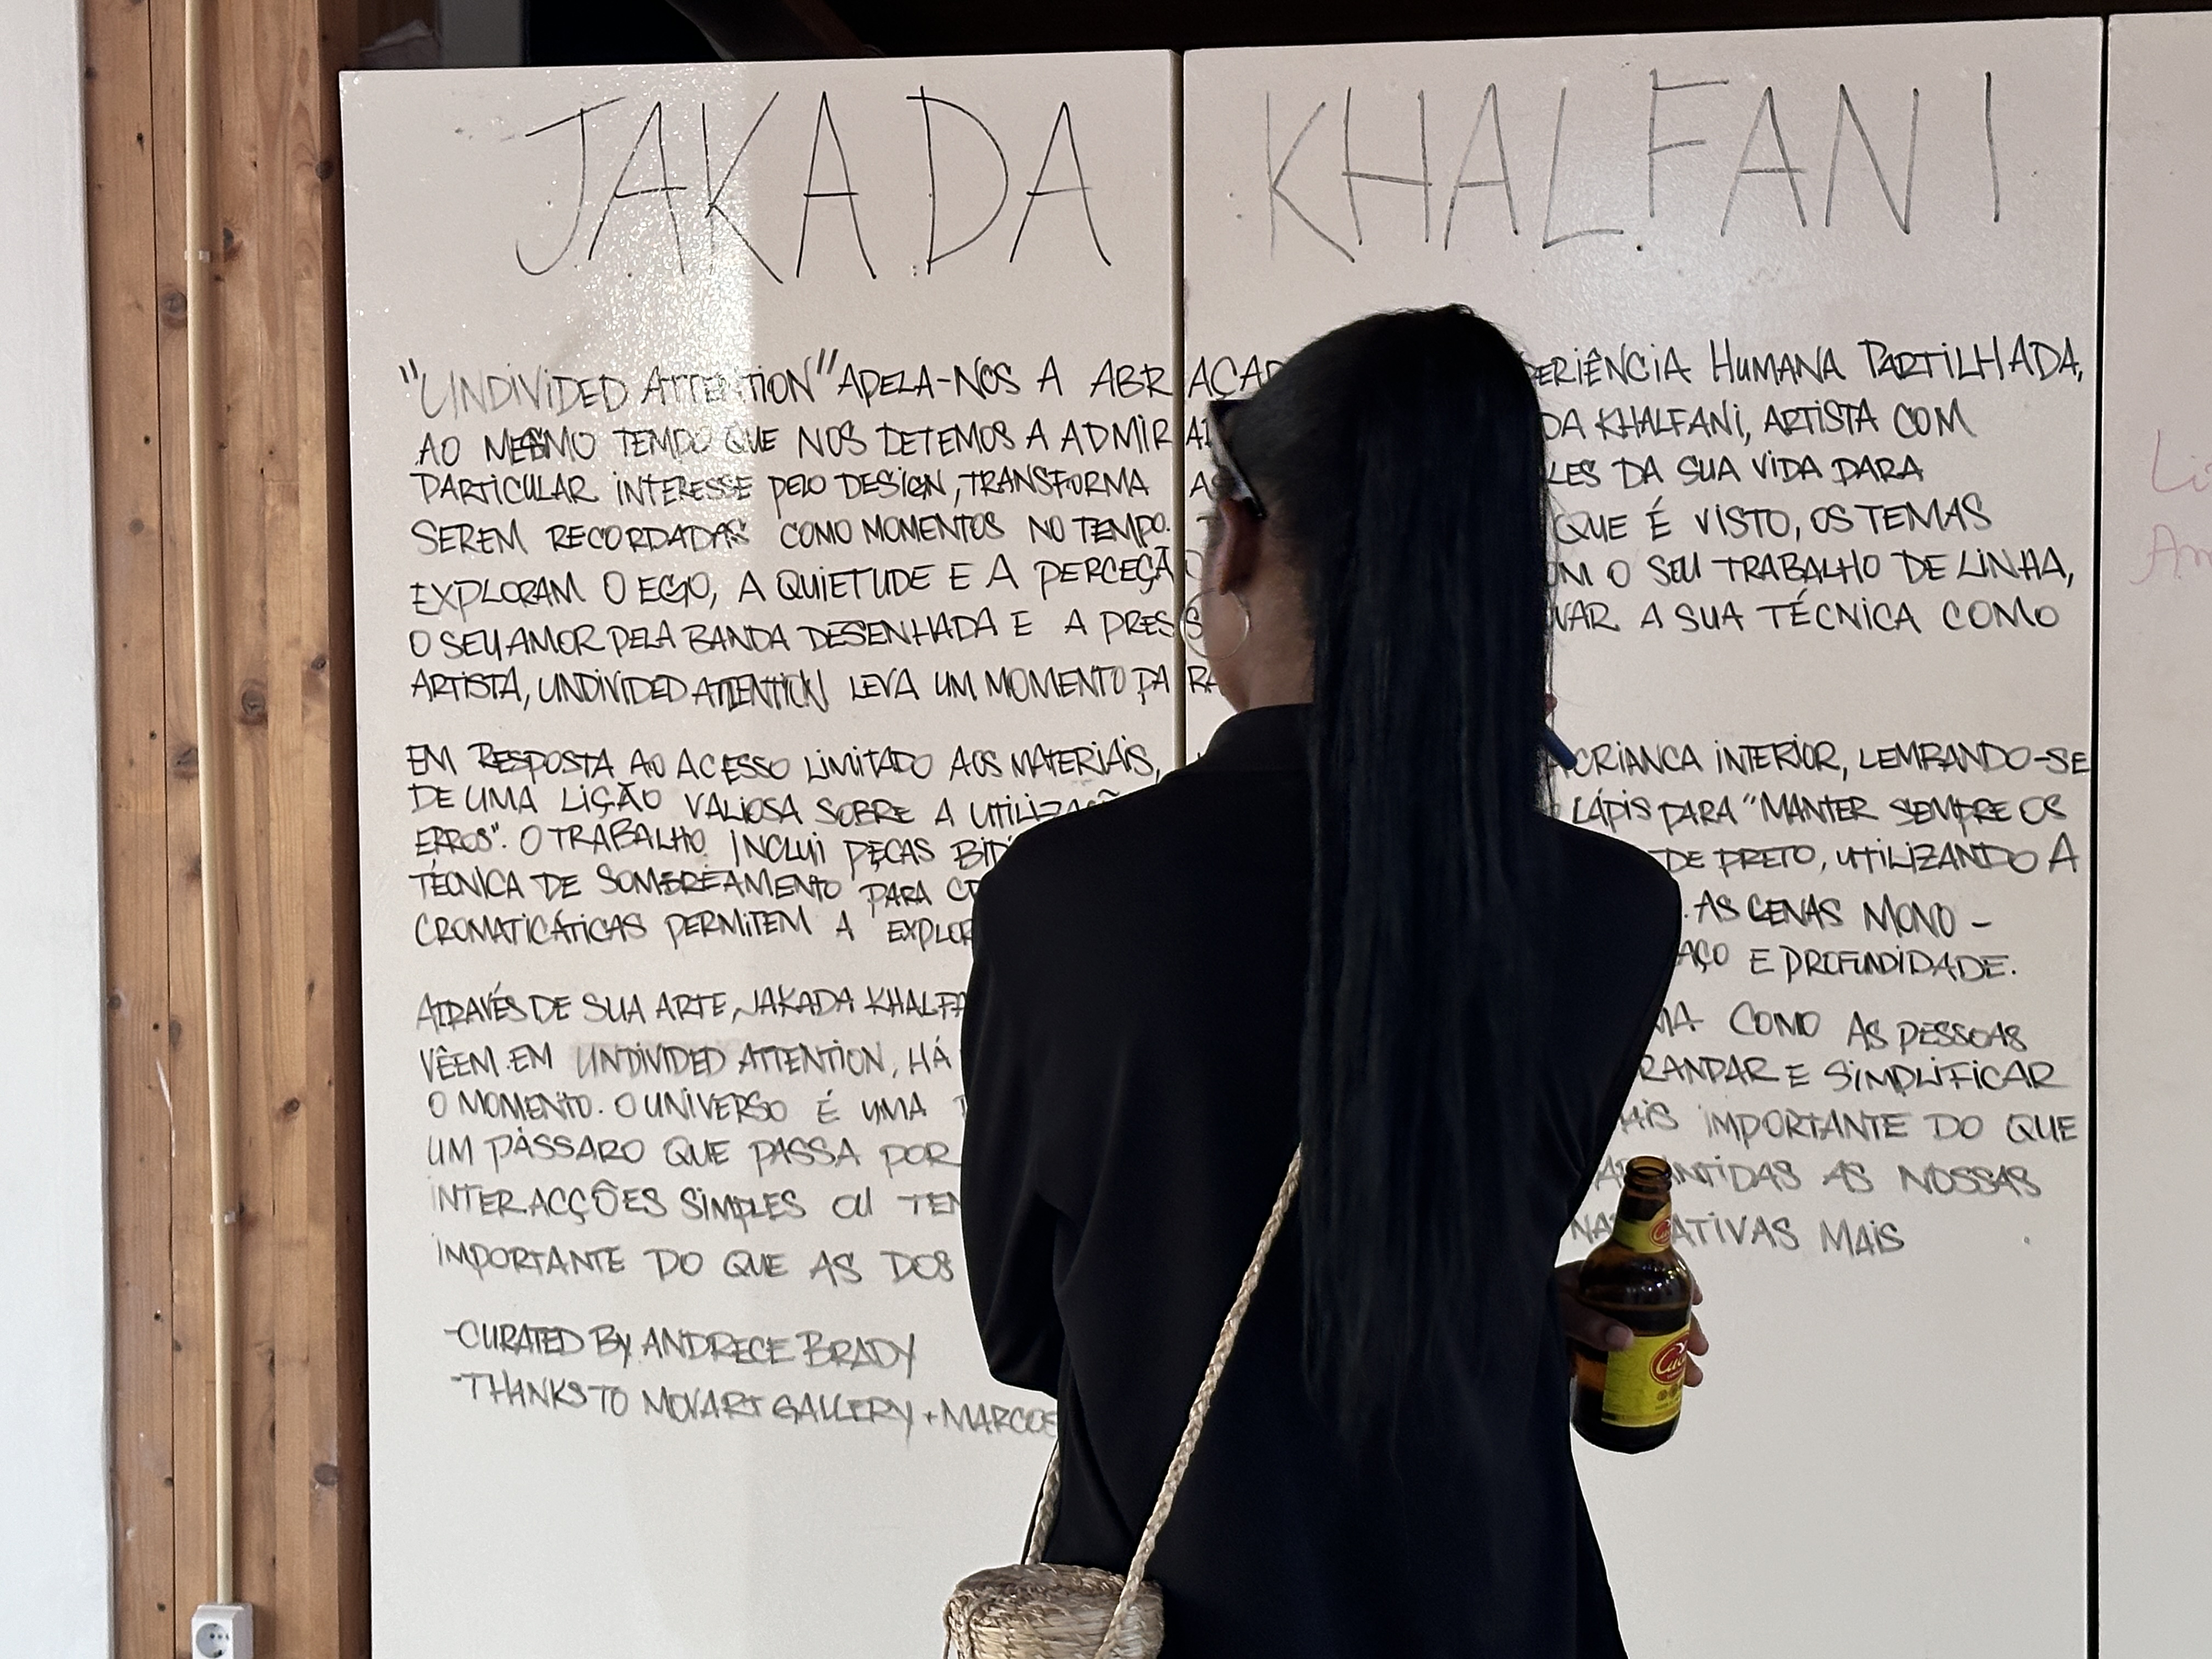 JAKADA KHALFANI
"UNDIVIDED ATTENTION" APELA-NOS A ABRAÇAR ERIÊNCIA HUMANA PARTILHADA,
AO MESMO TEMPO QUE NOS DETEMOS A ADMIRAR DA KHALFANI, ARTISTA COM
PARTICULAR INTERESSE PELO DESIGN, TRANSFORMA AS LES DA SUA VIDA PARA
SEREM RECORDADAS COMO MOMENTOS NO TEMPO. QUE É VISTO, OS TEMAS
EXPLORAM O EGO, A QUIETUDE E A PERCEÇÃO OM O SEU TRABALHO DE LINHA,
O SEU AMOR PELA BANDA DESENHADA E A PRESS VAR A SUA TÉCNICA COMO
ARTISTA, UNDIVIDED ATTENTION LEVA UM MOMENTO PARA
EM RESPOSTA AO ACESSO LIMITADO AOS MATERIAIS, CRIANCA INTERIOR, LEMBANDO-SE
DE UMA LIÇÃO VALIOSA SOBRE A UTILIZAÇÃ LÁPIS PARA "MANTER SEMPRE OS
ERROS". O TRABALHO INCLUI PEÇAS BID DE PRETO, UTILIZANDO A
TÉCNICA DE SOMBREAMENTO PARA CR . AS CENAS MONO-
CROMATICÁTICAS PERMITEM A EXPLOR AÇO E PROFUNDIDADE.
ATRAVÉS DE SUA ARTE, JAKADA KHALFA MA COMO AS PESSOAS
VÊEM. EM UNDIVIDED ATTENTION, HÁ RANDAR E SIMPLIFICAR
O MOMENTO. O UNIVERSO É UMA AIS IMPORTANTE DO QUE
UM PÁSSARO QUE PASSA POR ANTIDAS AS NOSSAS
INTERACÇÕES SIMPLES OU TEN NARRATIVAS MAIS
IMPORTANTE DO QUE AS DOS
-CURATED BY ANDRECE BRADY
-THANKS TO MOVART GALLERY + MARCOS